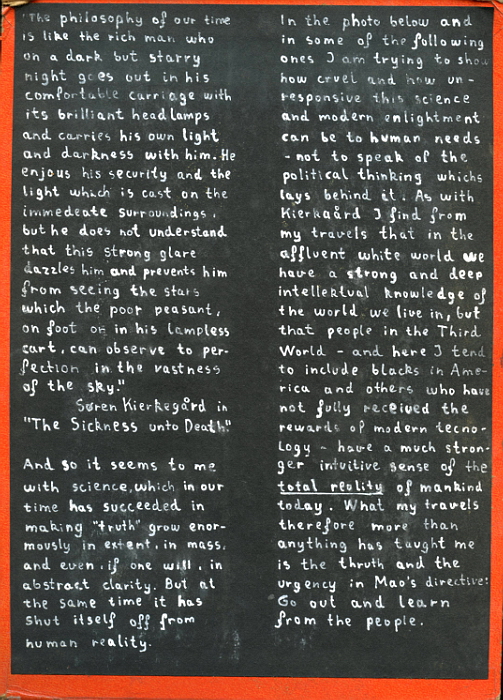 "The philosophy of our time
is like the rich man who
on a dark but starry
night goes out in his
comfortable carriage with
its brilliant headlamps
and carries his own light
and darkness with him. He
enjous his security and the
light which is cast on the
immedeate surroundings.
but he does not understand
that this strong glare
dazzles him and prevents him
from seeing the stars
which the poor peasant,
on foot or in his lampless
cart, can observe to per-
fection in the vastness
of the sky."
Søren Kierkegård in
"The Sickness unto Death"
And so it seems to me
with science, which in our
time has succeeded in
making "truth" grow enor-
mously in extent, in mass,
and even, if one will, in
abstract clarity. But at
the same time it has
shut itself off from
human reality.
In the photo below and
in some of the following
ones I am trying to show
how cruel and how un-
responsive this science
and modern enlightment
can be to human needs
- not to speak of the
political thinking whichs
lays behind it. As with
Kierkgård I find from
my travels that in the
affluent white world we
have a strong and deep
intellektual knowledge of
the world we live in, but
that people in the Third
World - and here I tend
to include blacks in Ame-
rica and others who have
not fully received the
rewards of modern tecno-
logy - have a much stron-
ger intuitive sense of the
total reality of mankind
today. What my travels
therefore more than
anything has taught me
is the thruth and the
urgency in Mao's directive:
Go out and learn
from the people.